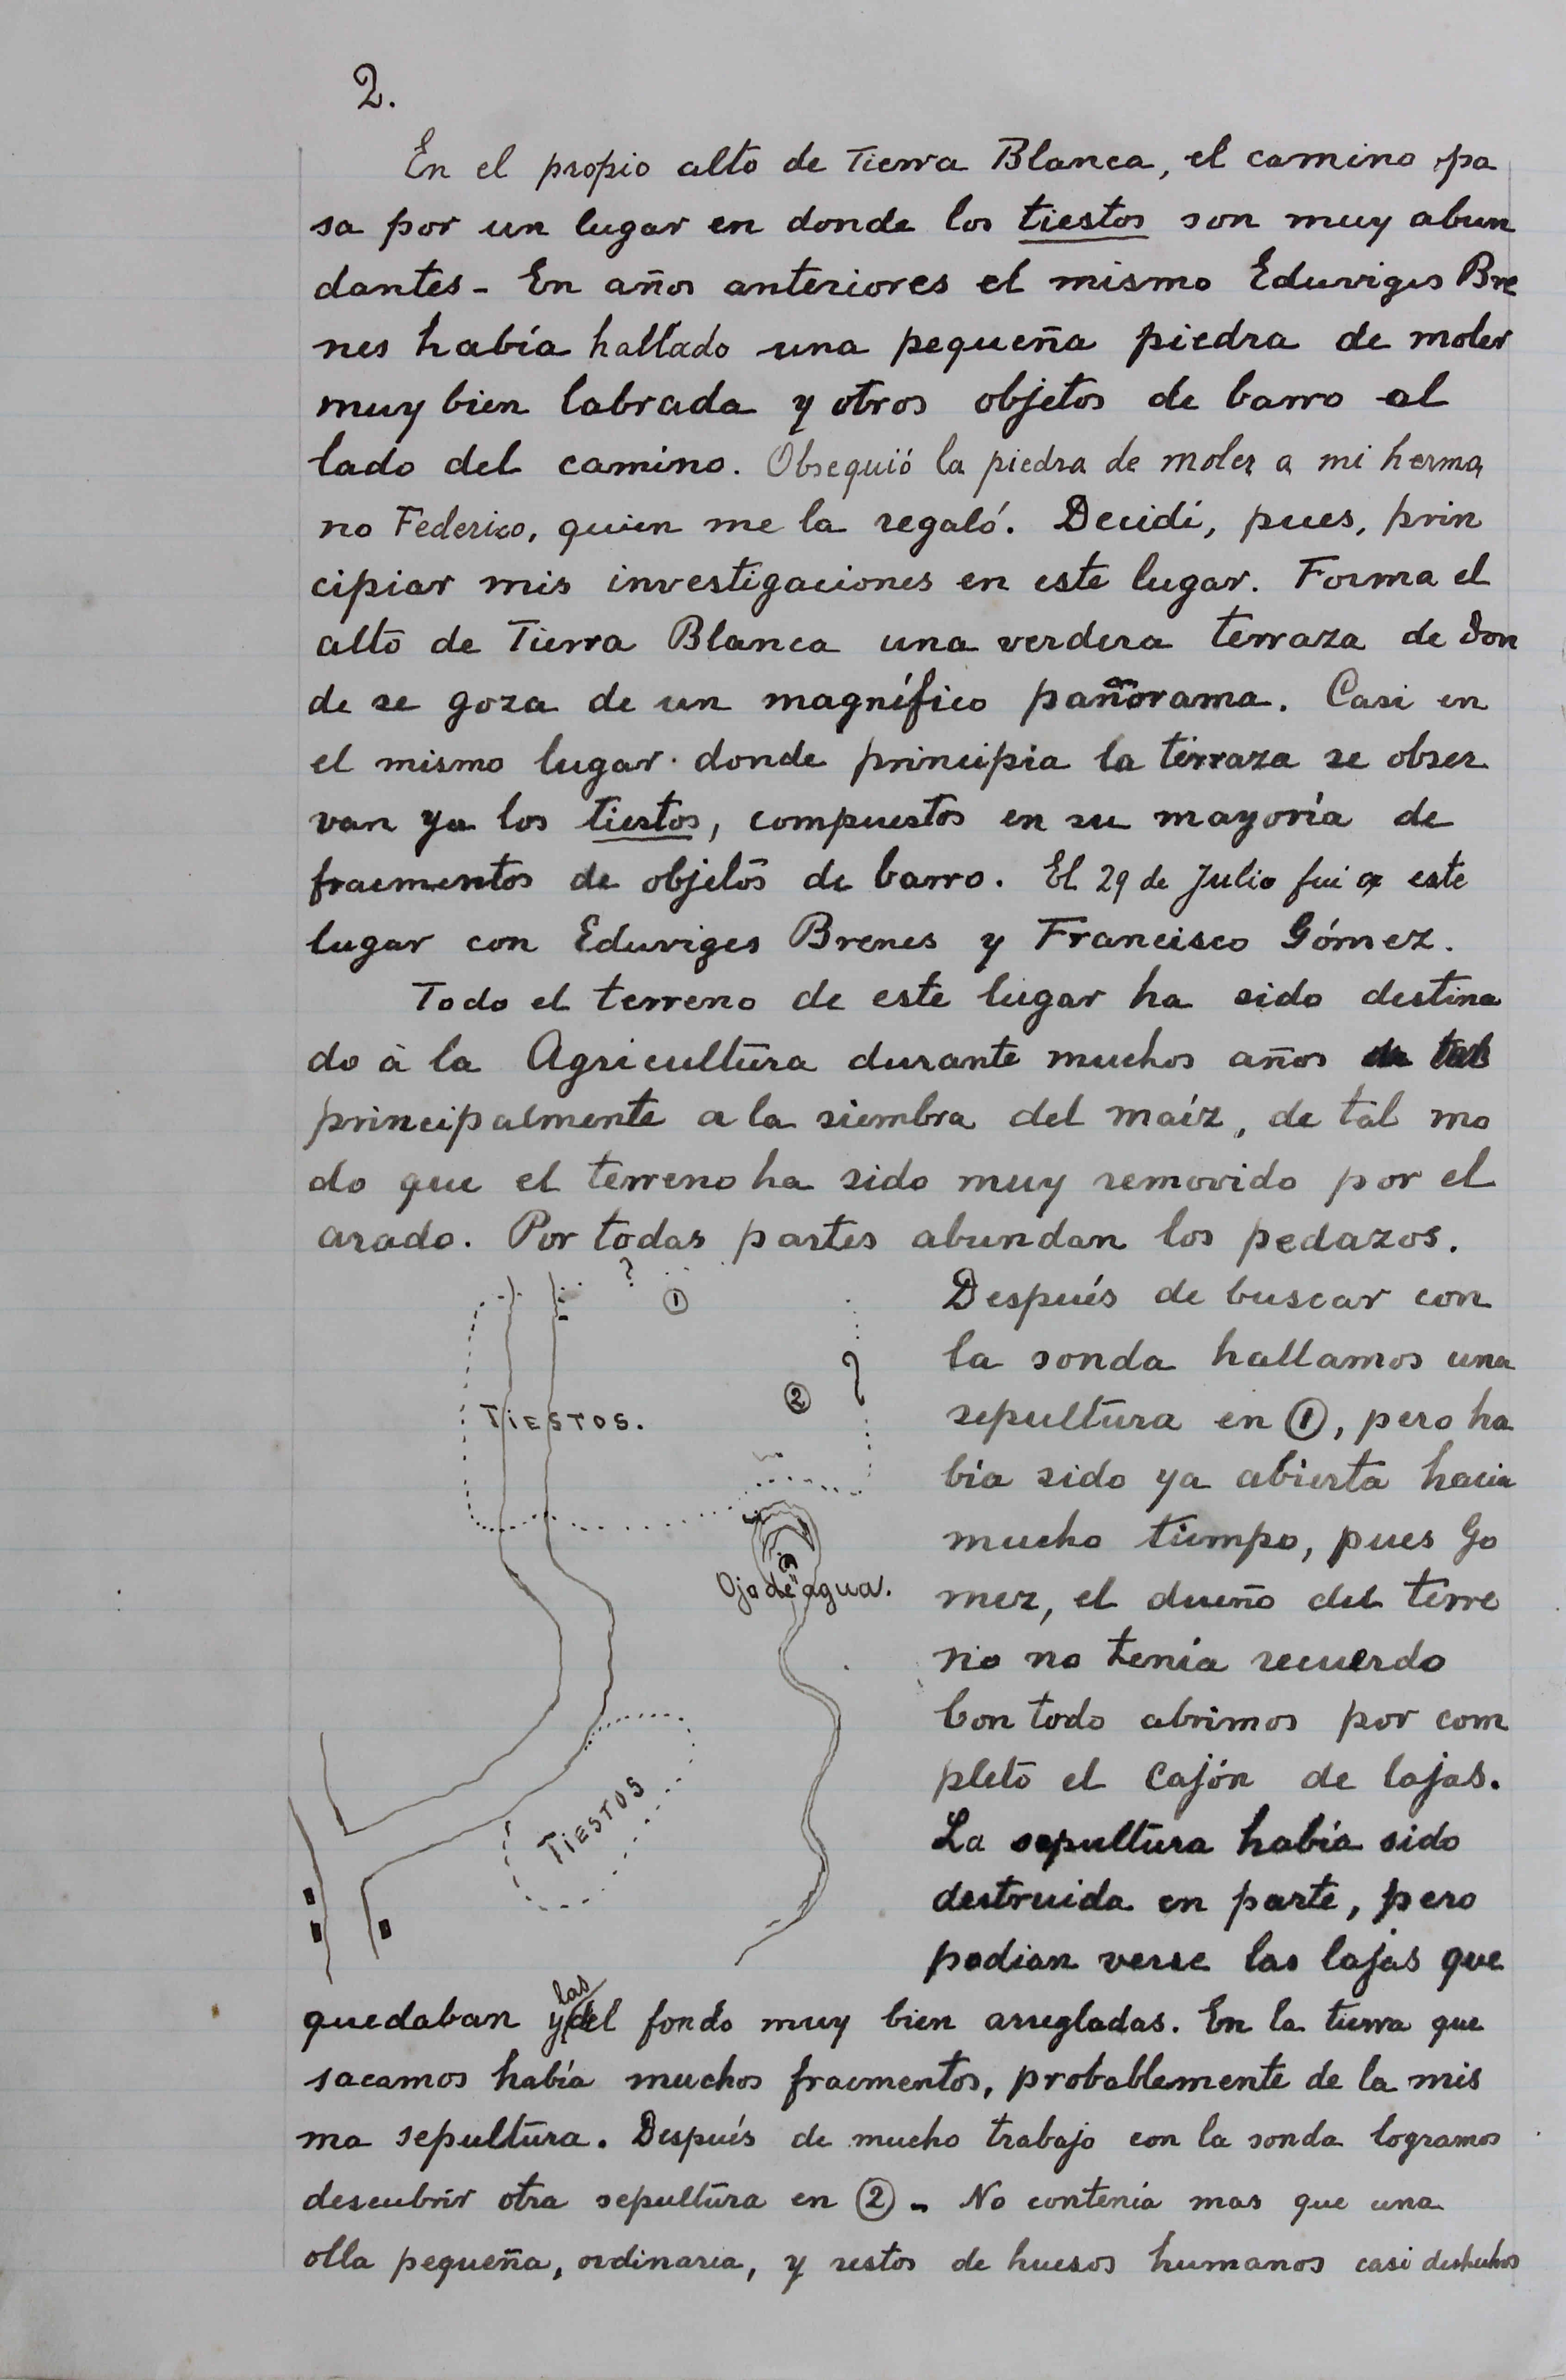 2.
En el propio alto de Tierra Blanca, el camino pa
sa por un lugar en donde los tiestos son muy abun
dantes - En años anteriores el mismo Eduviges Bre
nes había hallado una pequeña piedra de moler
muy bien labrada y otros objetos de barro al
lado del camino. Obsequió la piedra de moler a mi herma
no Federico, quien me la regaló. Decidí, pues, prin
cipiar mis investigaciones en este lugar. Forma el
alto de Tierra Blanca una verdera terraza de don
de se goza de un magnífico panorama. Casi en
el mismo lugar donde principia la terraza se obser
van ya los tiestos, compuestos en su mayoría de
fracmentos de objetos de barro. El 29 de Julio fui a este
lugar con Eduviges Brenes y Francisco Gómez.
Todo el terreno de este lugar ha sido destina
do à la Agricultura durante muchos años
principalmente a la siembra del maíz, de tal mo
do que el terreno ha sido muy removido por el
arado. Por todas partes abundan los pedazos.
? 1
2
TIESTOS.
Ojo de agua.
TIESTOS
Después de buscar con
la sonda hallamos una
sepultura en 1, pero ha
bía sido ya abierta hacia
mucho tiempo, pues Go
mez, el dueño del terre
no no tenía recuerdo
Con todo abrimos por com
pleto el cajón de lajas.
La sepultura había sido
destruida en parte, pero
podian verse las lajas que
quedaban y las del fondo muy bien arregladas. En la tierra que
sacamos había muchos fracmentos, probablemente de la mis
ma sepultura. Después de mucho trabajo con la sonda logramos
descubrir otra sepultura en 2 - No contenía mas que una
olla pequeña, ordinaria, y restos de huesos humanos casi deshechos